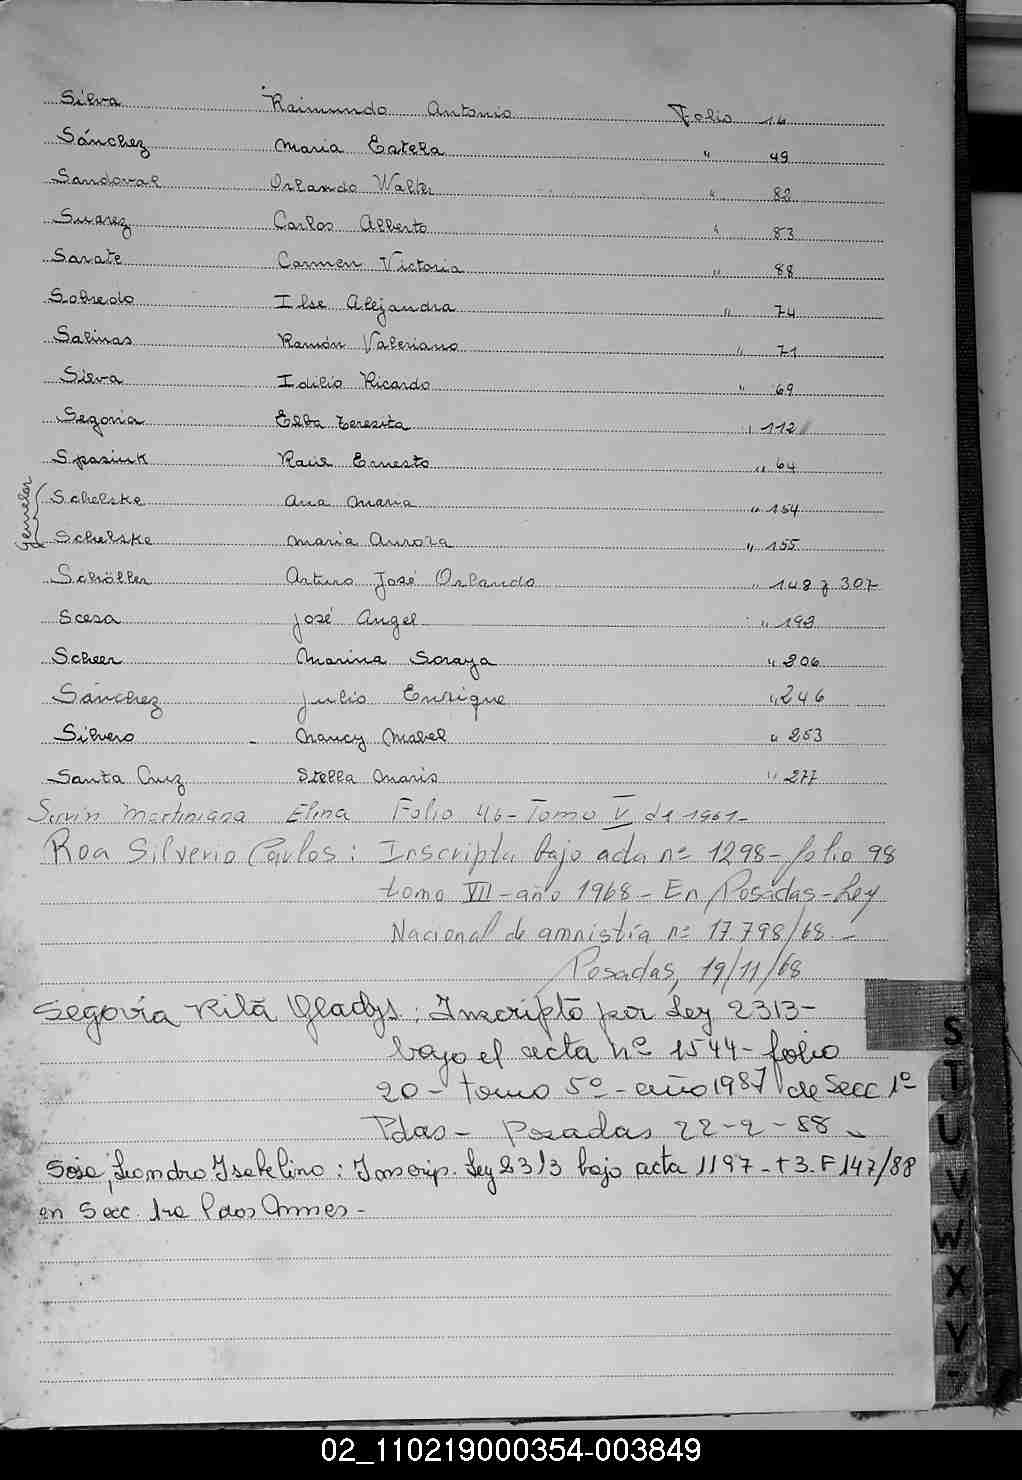 Silva Raimundo Antonio Folio 16
Sánchez Maria Estela " 49
Sandoval Orlando Walter " 82
Suarez Carlos Alberto " 83
Sarate Carmen Victoria " 88
Sobredo Ilse Alejandra " 74
Salinas Ramón Valeriano " 71
Silva Idilio Ricardo " 69
Segovia Elba Teresita " 112
Spasiuk Raúl Ernesto " 64
Gemelos
Schelske Ana Maria " 154
Schelske Maria Aurora " 155
Schöller Arturo José Orlando " 148 y 307
Scesa José Angel " 193
Scheer Marina Soraya " 206
Sánchez Julio Enrique " 246
Silvero - Nancy Mabel " 253
Santa Cruz Stella Maris " 277
Martiniana Elina Folio 46 - Tomo V de 1961-
Roa Silverio Carlos: Inscripta bajo acta nº 1298 - folio 98
tomo VII - año 1968 - En Posadas - Ley
Nacional de amnistía nº 17.798/68.-
Posadas, 19/11/68
Segovia Rita Gladys: Inscripto por Ley 2313-
bajo el acta nº 1544 - folio
20 - tomo 5º - año 1987 de Secc 1º
Pdas - Posadas 22-2-88
Sosa, Leandro Isabelino: Inscrip. Ley 2313 bajo acta 1197 - t 3. F 147/88
en Secc. 1ra Pdas Mnes -
S
T
U
V
W
X
Y
02_110219000354-003849